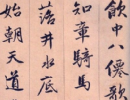 飲中八僊歌
知章騎馬
落井水底
始朝天道